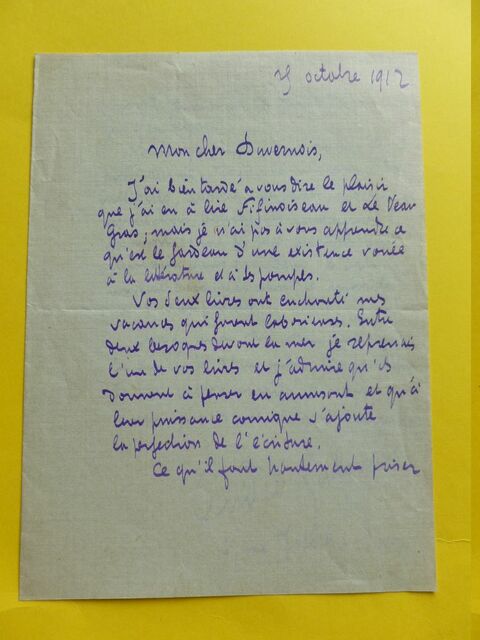 25 octobre 1912
Mon cher Duvernois,
J'ai bien tardé à vous dire le plaisir
que j'ai eu à lire Fifinoiseau et Le Veau
Gras ; mais je n'ai pas à vous apprendre ce
qu'est le fardeau d'une existence vouée
à la littérature et à ses pompes.
Vos deux livres ont enchanté mes
vacances qui furent laborieuses. Entre
deux besognes devant la mer je reprenais
l'un de vos livres et j'admire qu'ils
donnent à penser en amusant et qu'à
leur puissance comique s'ajoute
la perfection de l'écriture.
Ce qu'il faut hautement priser